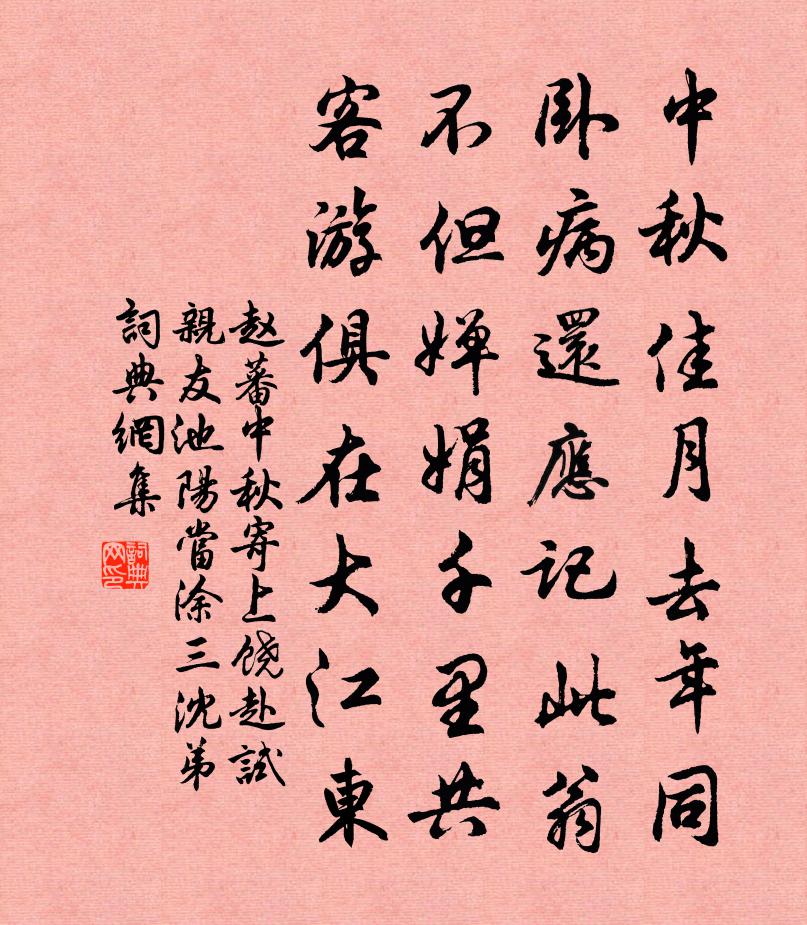 中秋佳月去年同
卧病還應記此翁
不但嬋娟千里共
客游俱在大江東
赵蕃中秋寄上饶赴試
親友池陽當涂三沈弟
詞典網集
詞典网印